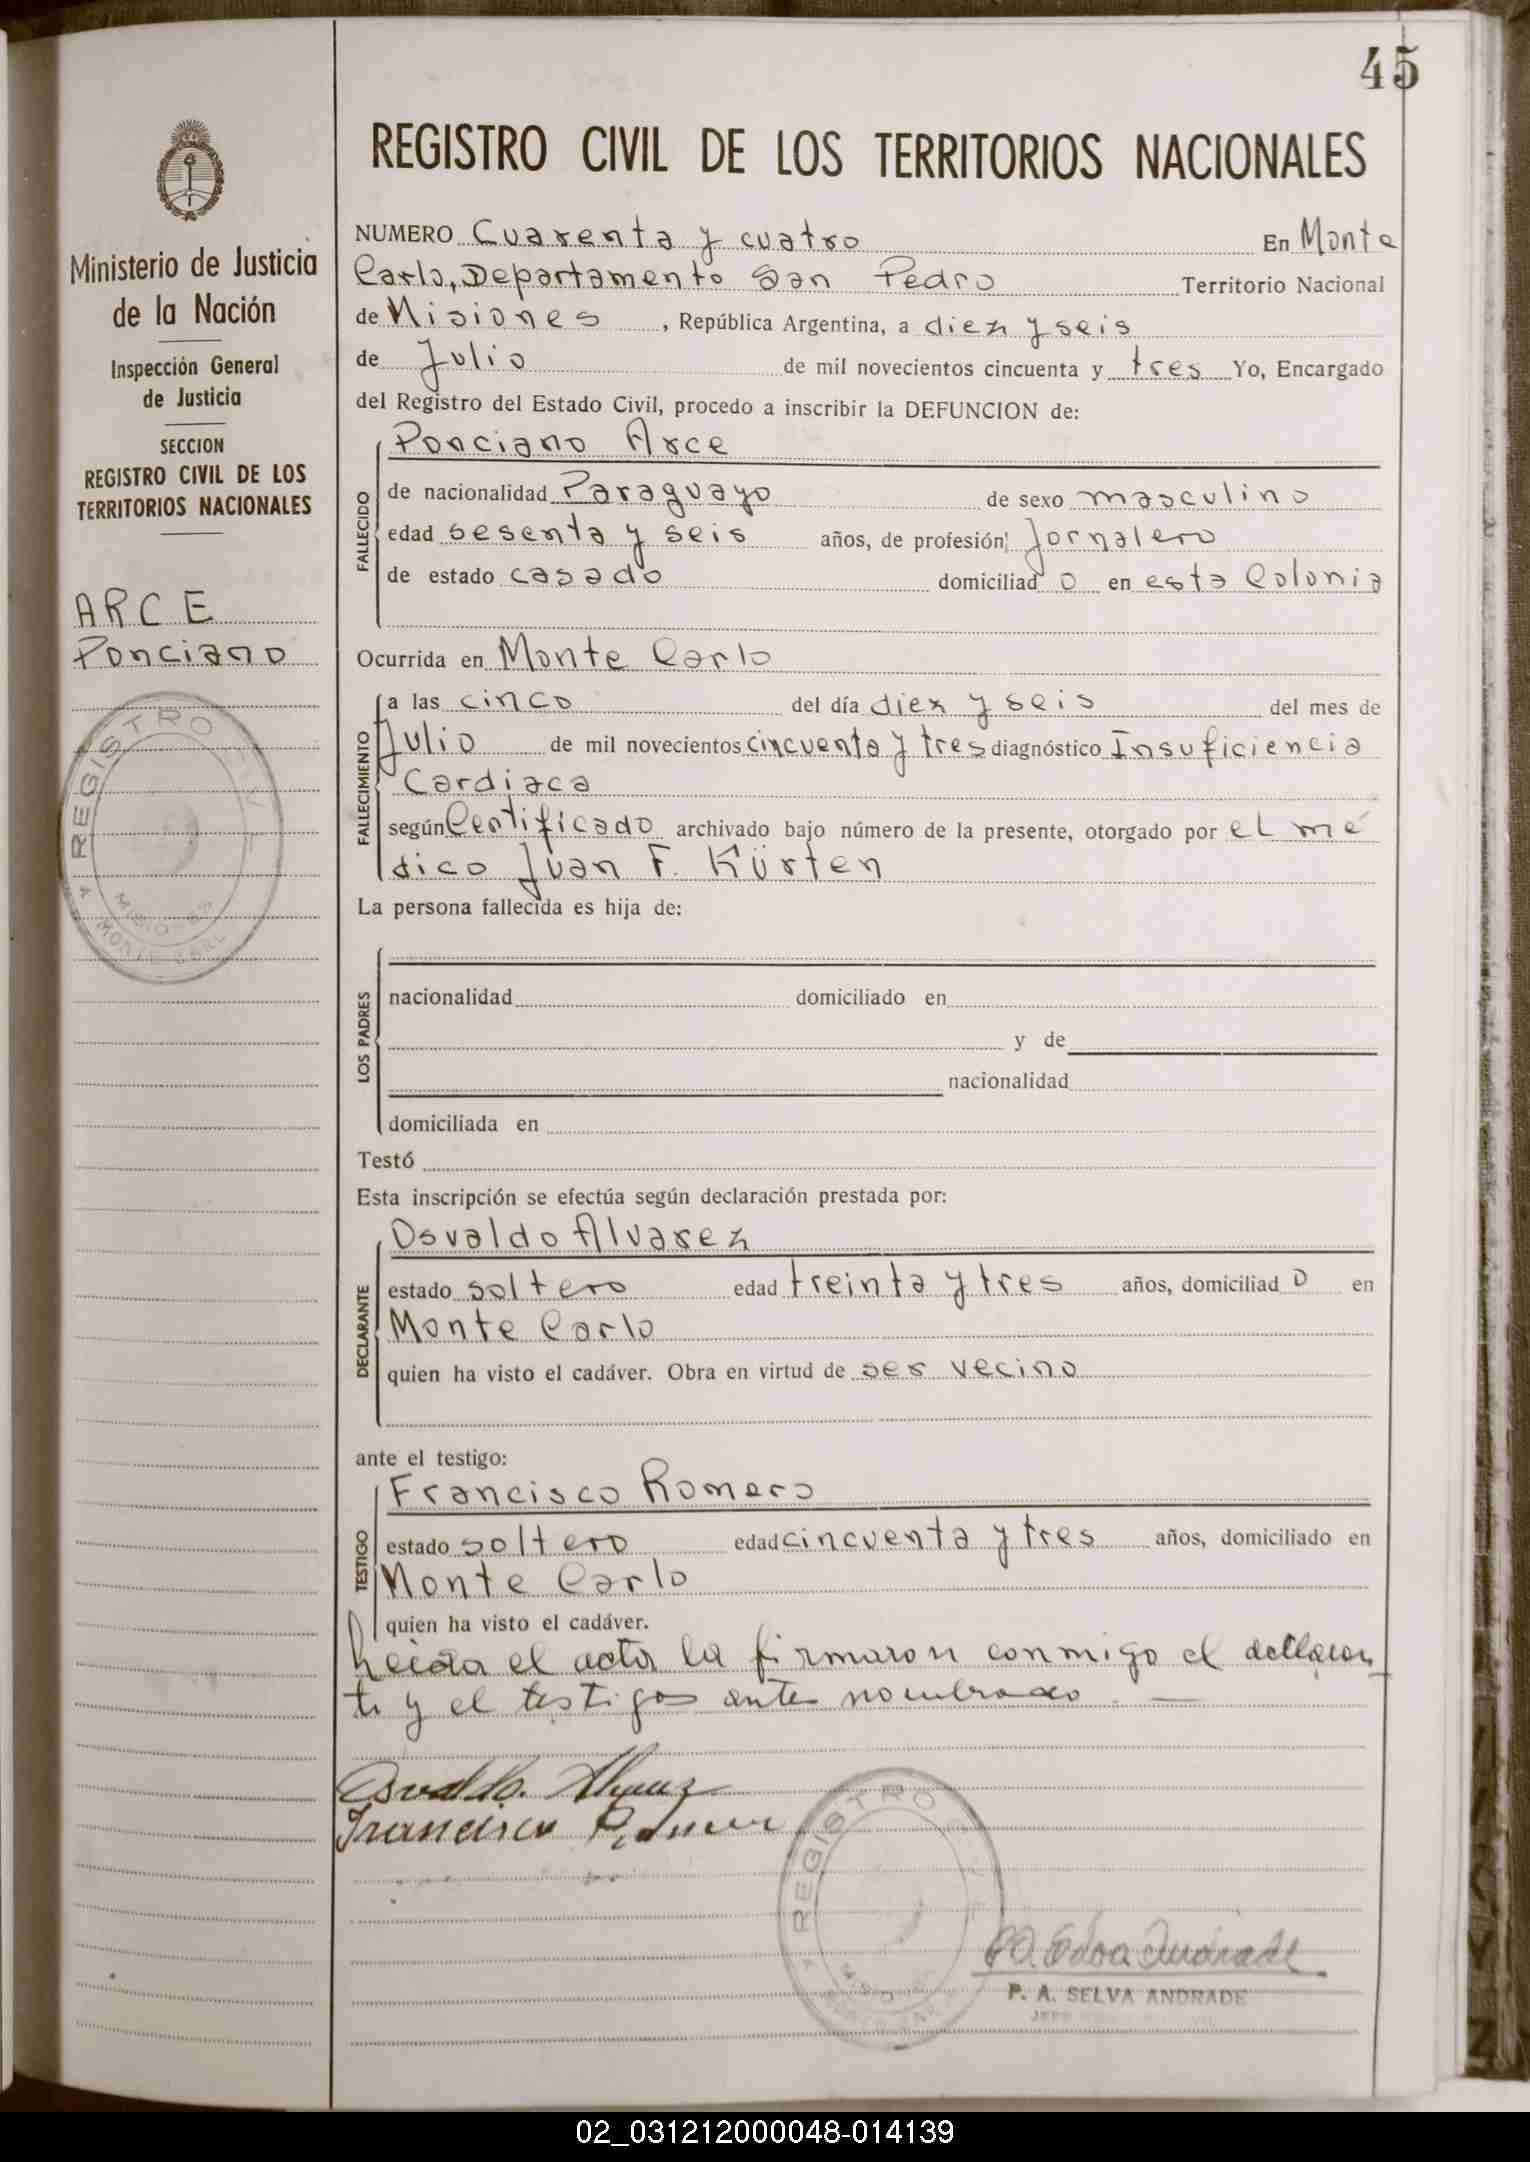 45
REGISTRO CIVIL DE LOS TERRITORIOS NACIONALES
Ministerio de Justicia
de la Nación
Inspección General
de Justicia
SECCION
REGISTRO CIVIL DE LOS
TERRITORIOS NACIONALES
ARCE
Ponciano
REGISTRO CIVIL
MISIONES
MONTE CARLO
NUMERO Cuarenta y cuatro En Monte
Carlo, Departamento San Pedro Territorio Nacional
de Misiones, República Argentina, a diez y seis
de Julio de mil novecientos cincuenta y tres Yo, Encargado
del Registro del Estado Civil, procedo a inscribir la DEFUNCION de:
FALLECIDO
Ponciano Arce
de nacionalidad Paraguayo de sexo masculino
edad sesenta y seis años, de profesión Jornalero
de estado casado domiciliado en esta Colonia
Ocurrida en Monte Carlo
FALLECIMIENTO
a las cinco del día diez y seis del mes de
Julio de mil novecientos cincuenta y tres diagnóstico Insuficiencia
Cardiaca
según Certificado archivado bajo número de la presente, otorgado por el mé
dico Juan F. Kürten
La persona fallecida es hija de:
LOS PADRES
nacionalidad domiciliado en
y de
nacionalidad
domiciliada en
Testó
Esta inscripción se efectúa según declaración prestada por:
DECLARANTE
Osvaldo Alvarez
estado soltero edad treinta y tres años, domiciliado en
Monte Carlo
quien ha visto el cadáver. Obra en virtud de ser vecino
ante el testigo:
TESTIGO
Francisco Romero
estado soltero edad cincuenta y tres años, domiciliado en
Monte Carlo
quien ha visto el cadáver.
Leida el acta la firmaron conmigo el declaran
te y el testigos antes nombrado
Osvaldo Alvarez
Francisco Romero
REGISTRO
P. A. Selva Andrade
P. A. SELVA ANDRADE
02_031212000048-014139